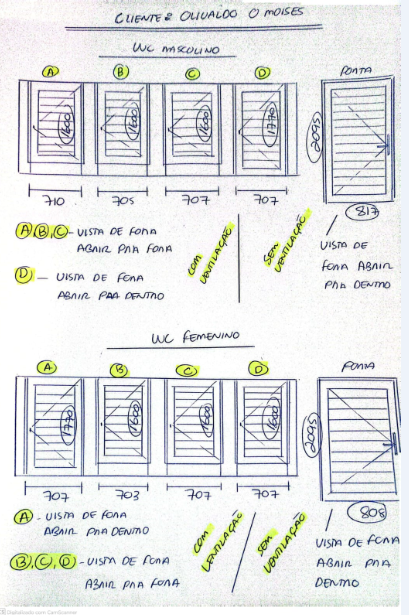 CLIENTE: OLIVALDO O MOISES
WC MASCULINO
A B C D PORTA
1600 1600 1600 1770 2095
710 705 707 707 817
A, B, C - VISTA DE FORA
ABRIR PRA FORA
D - VISTA DE FORA
ABRIR PRA DENTRO
COM VENTILAÇÃO
SEM VENTILAÇÃO
VISTA DE
FORA ABRIR
PRA DENTRO
WC FEMENINO
A B C D PORTA
1770 1600 1600 1600 2095
707 703 707 707 808
A - VISTA DE FORA
ABRIR PRA DENTRO
B, C, D - VISTA DE FORA
ABRIR PRA FORA
COM VENTILAÇÃO
SEM VENTILAÇÃO
VISTA DE FORA
ABRIR PRA
DENTRO
Digitalizado com CamScanner